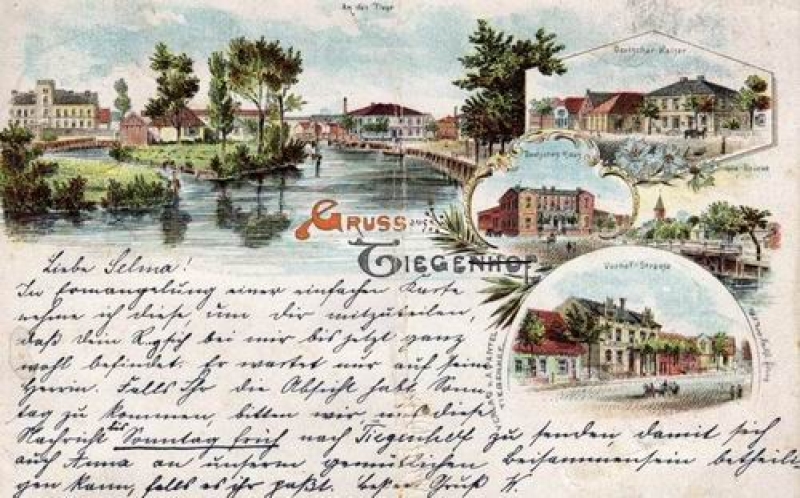 An der Tiege
Deutscher Kaiser
Deutsches Haus
Gruss aus
Tiegenhof
Vorhof-Strasse
Liebe Selma!
In Ermangelung einer einfachen Karte
nehme ich diese, um dir mitzuteilen,
daß dein sich bei mir bis jetzt ganz
wohl befindet. Er wartet nur auf seine
Herrin. Falls Ihr die Absicht habt Sonn
tag zu kommen, bitten wir, uns diese
Nachricht bis Sonntag früh nach Tiegenhof zu senden damit sich
auch Anna an unserem gemütlichen Beisammensein betheili
gen kann, falls es ihr paßt. Besten Gruß K.